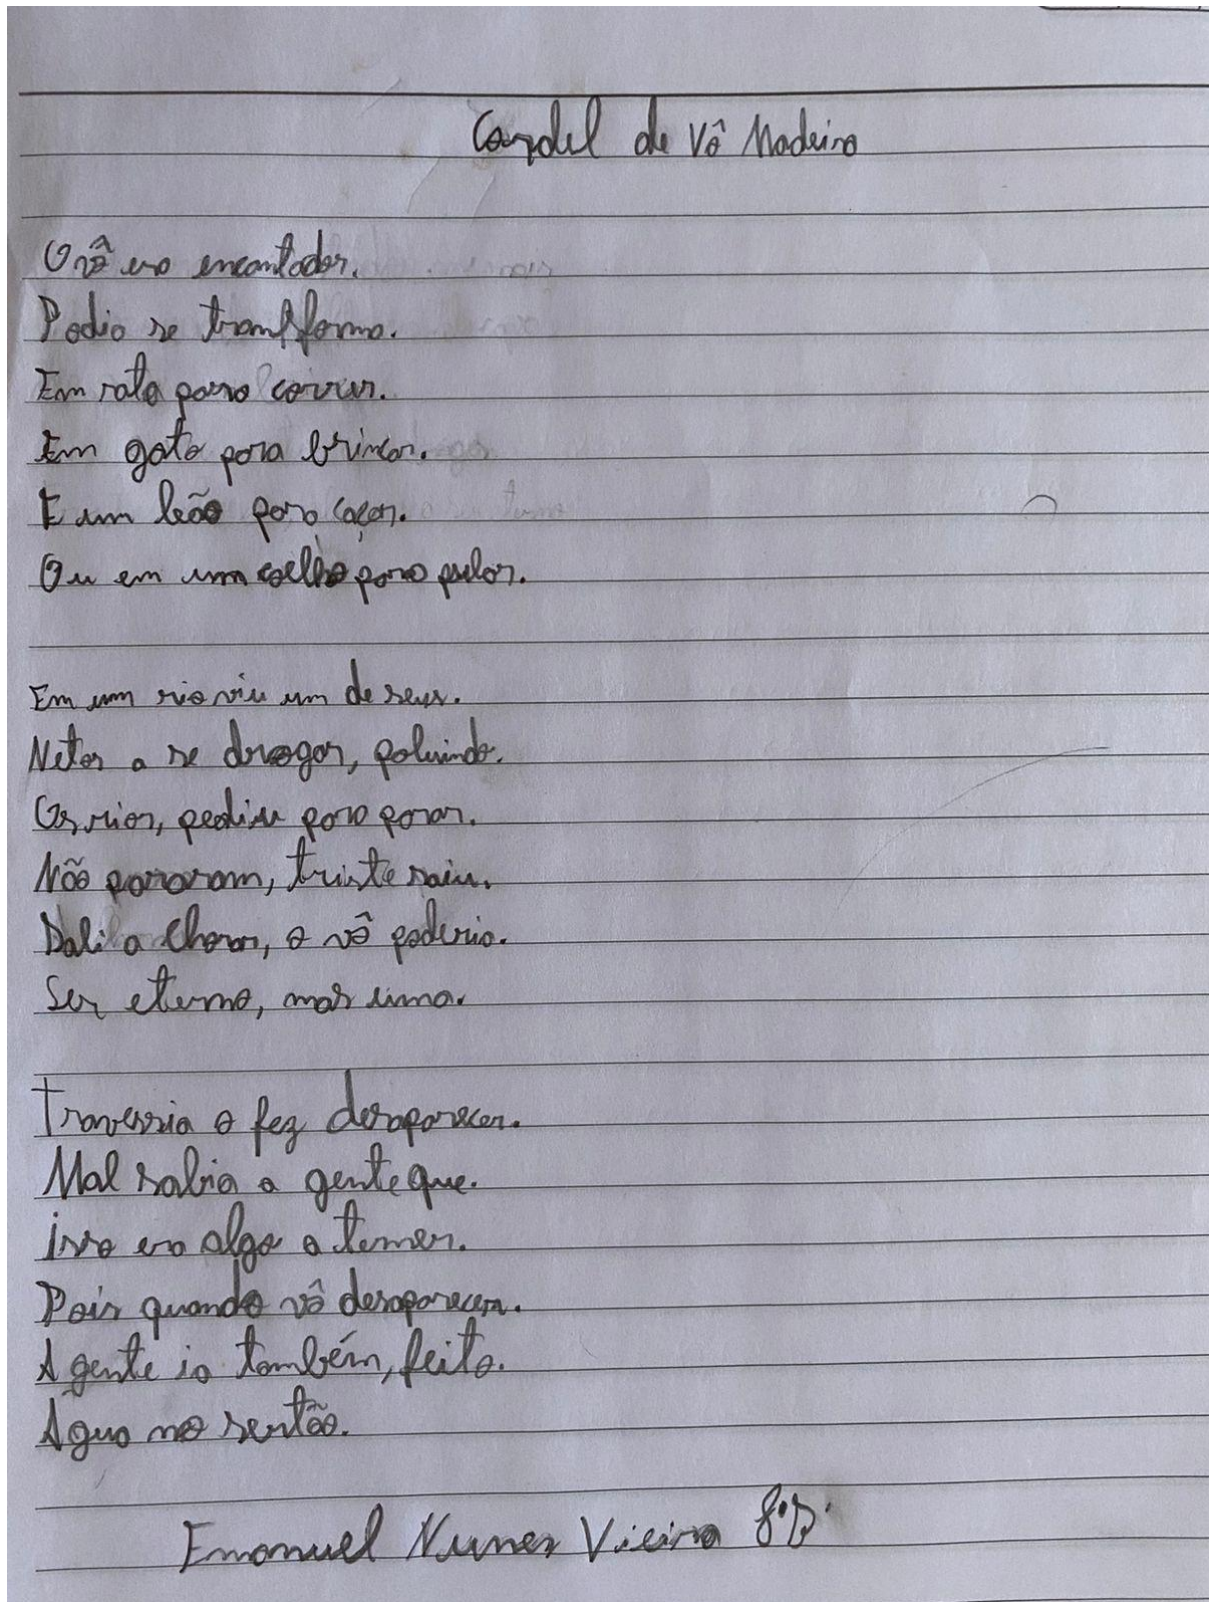 Cordel de Vô Madeira
O vô era encantador.
Podia se transforma.
Em rato para correr.
Em gato para brincar.
E um leão para caçar.
Ou em um coelho para pular.
Em um rio viu um de seus.
Netos a se drogar, poluindo.
Os rios, pediu para parar.
Não pararam, triste saiu.
Dali a chorar, o vô poderia.
Ser eterno, mas uma.
Travessia o fez desaparecer.
Mal sabia a gente que.
isso era algo a temer.
Pois quando vô desaparecer.
A gente ia também, feito.
Água no sertão.
Emanuel Nunes Vieira 8°B